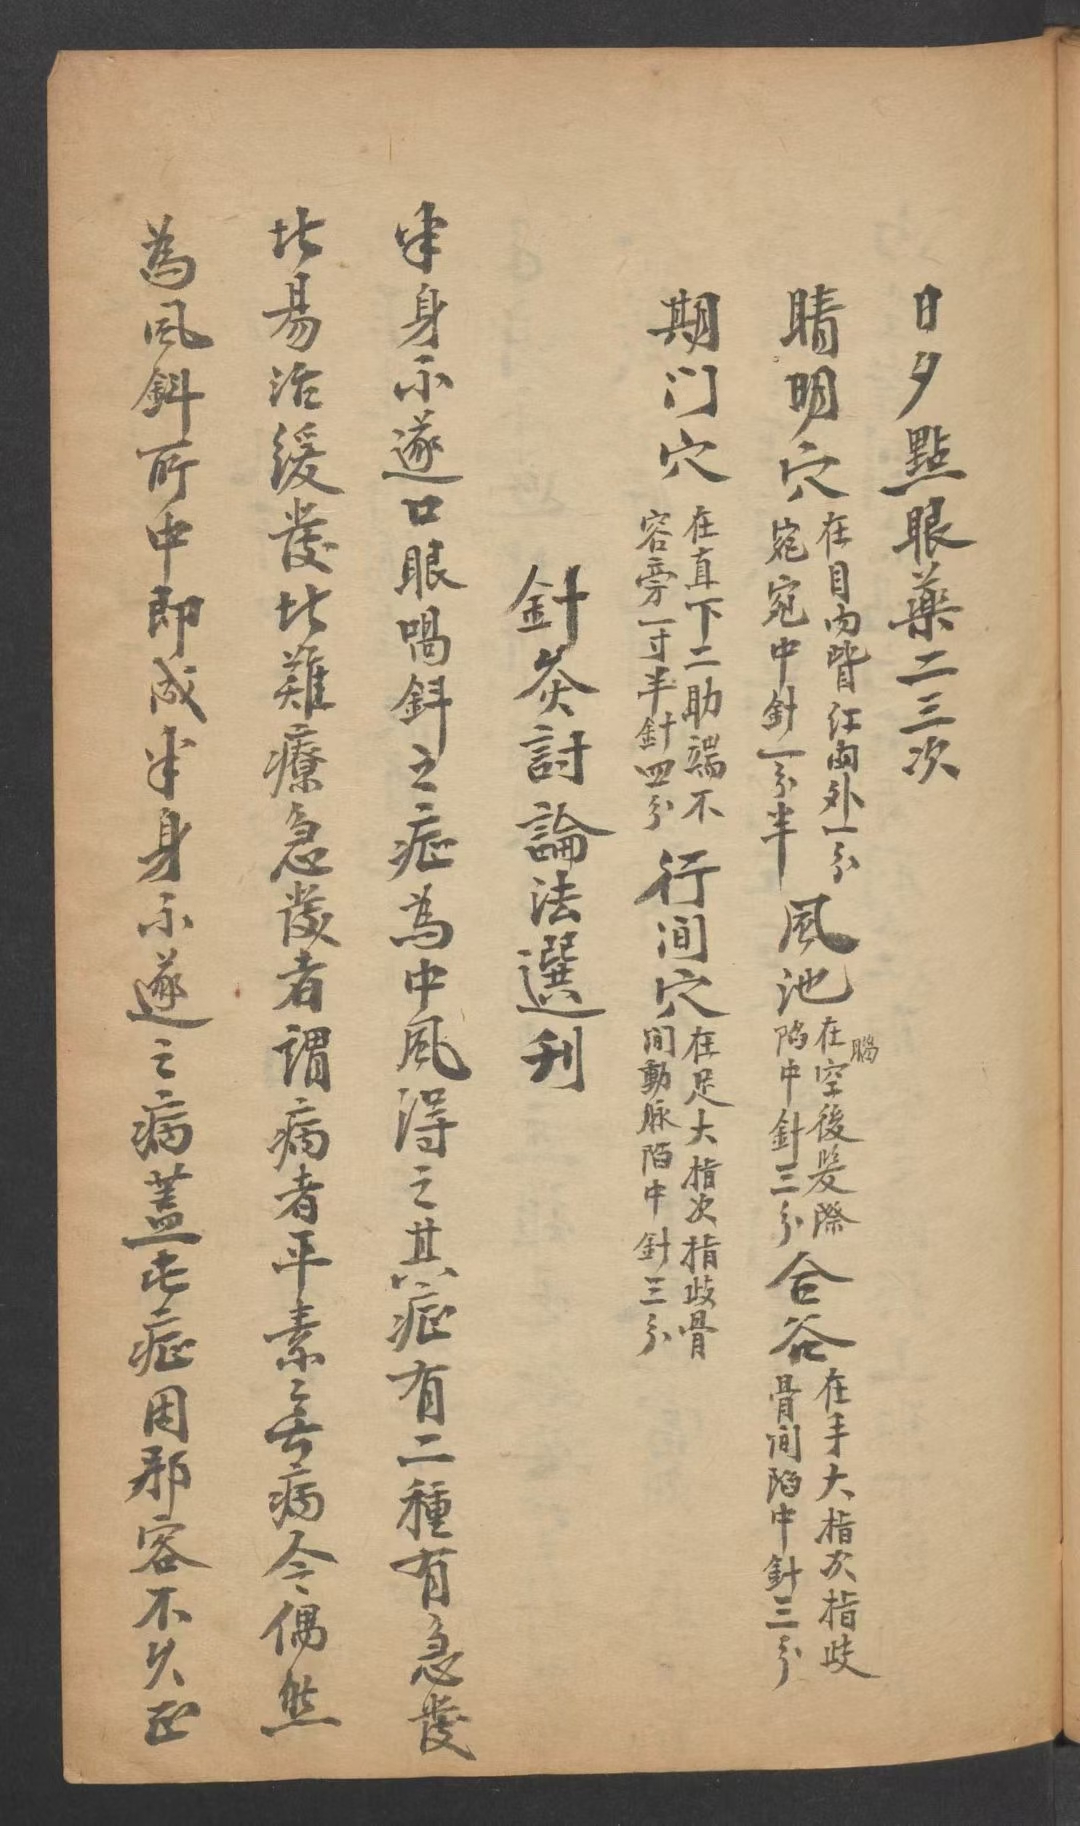 日夕點眼藥二三次
睛明穴 在目內眥紅肉外一分
宛宛中針一分半 風池 在腦空後髮際
陷中針三分 合谷 在手大指次指歧
骨間陷中針三分
期门穴 在直下二肋端不
容旁一寸半針四分 行间穴 在足大指次指歧骨
間動脉陷中針三分
針灸討論法選刊
半身不遂口眼喎斜之症為中風得之其症有二種有急發
比易治緩發比難療急發者謂病者平素無病今偶然
為風斜所中即成半身不遂之病蓋此症因邪容不久正